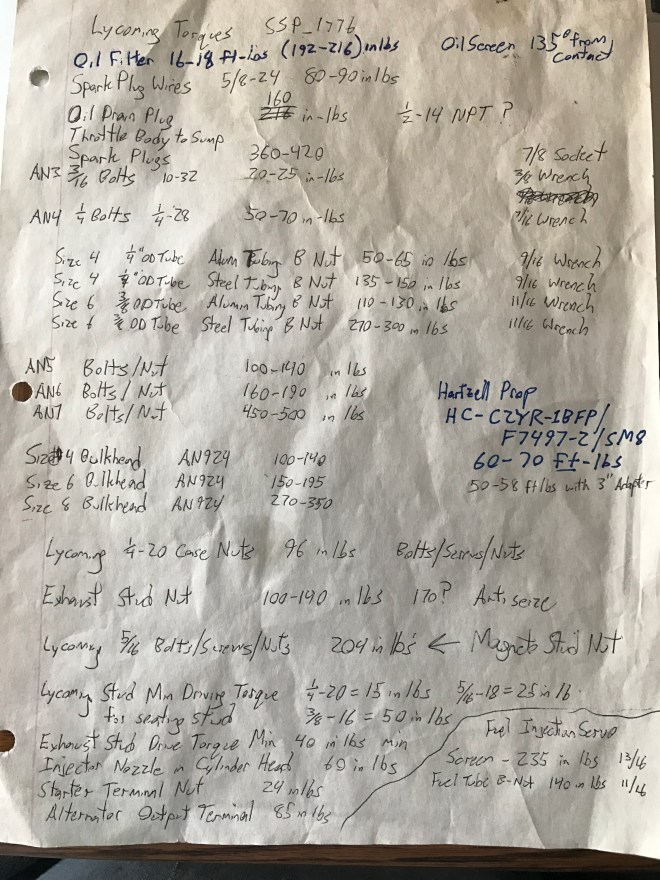 Lycoming Torques SSP_1776
Oil Filter 16-18 ft-lbs (192-216) in lbs Oil Screen 135° from Contact
Spark Plug Wires 5/8-24 80-90 in lbs
160
Oil Drain Plug 216 in-lbs 1/2-14 NPT ?
Throttle Body to Sump
Spark Plugs 360-420 7/8 Socket
AN3 3/16 Bolts 10-32 20-25 in-lbs 3/8 Wrench
AN4 1/4 Bolts 1/4-28 50-70 in-lbs 7/16 Wrench
Size 4 1/4" OD Tube Alum Tubing B Nut 50-65 in lbs 9/16 Wrench
Size 4 1/4" OD Tube Steel Tubing B Nut 135-150 in lbs 9/16 Wrench
Size 6 3/8 OD Tube Alumin Tubing B Nut 110-130 in lbs 11/16 Wrench
Size 6 3/8 OD Tube Steel Tubing B Nut 270-300 in lbs 11/16 Wrench
AN5 Bolts/Nut 100-140 in lbs
AN6 Bolts/Nut 160-190 in lbs
AN7 Bolts/Nut 450-500 in lbs
Hartzell Prop
HC-C2YR-1BFP/
F7497-2/SM8
60-70 Ft-lbs
50-58 ft lbs with 3" Adapter
Size 4 Bulkhead AN924 100-140
Size 6 Bulkhead AN924 150-195
Size 8 Bulkhead AN924 270-350
Lycoming 1/4-20 Case Nuts 96 in lbs Bolts/Screws/Nuts
Exhaust Stud Nut 100-140 in lbs 170? Antiseize
Lycoming 5/16 Bolts/Screws/Nuts 204 in lbs ← Magneto Stud Nut
Lycoming Stud Min Driving Torque 1/4-20 = 15 in lbs 5/16-18 = 25 in lb
for seating stud 3/8-16 = 50 in lbs
Exhaust Stud Drive Torque Min 40 in lbs min
Injector Nozzle in Cylinder Head 60 in lbs
Starter Terminal Nut 24 in lbs
Alternator Output Terminal 85 in lbs
Fuel Injection Servo
Screen - 235 in lbs 13/16
Fuel Tube B-Nut 140 in lbs 11/16